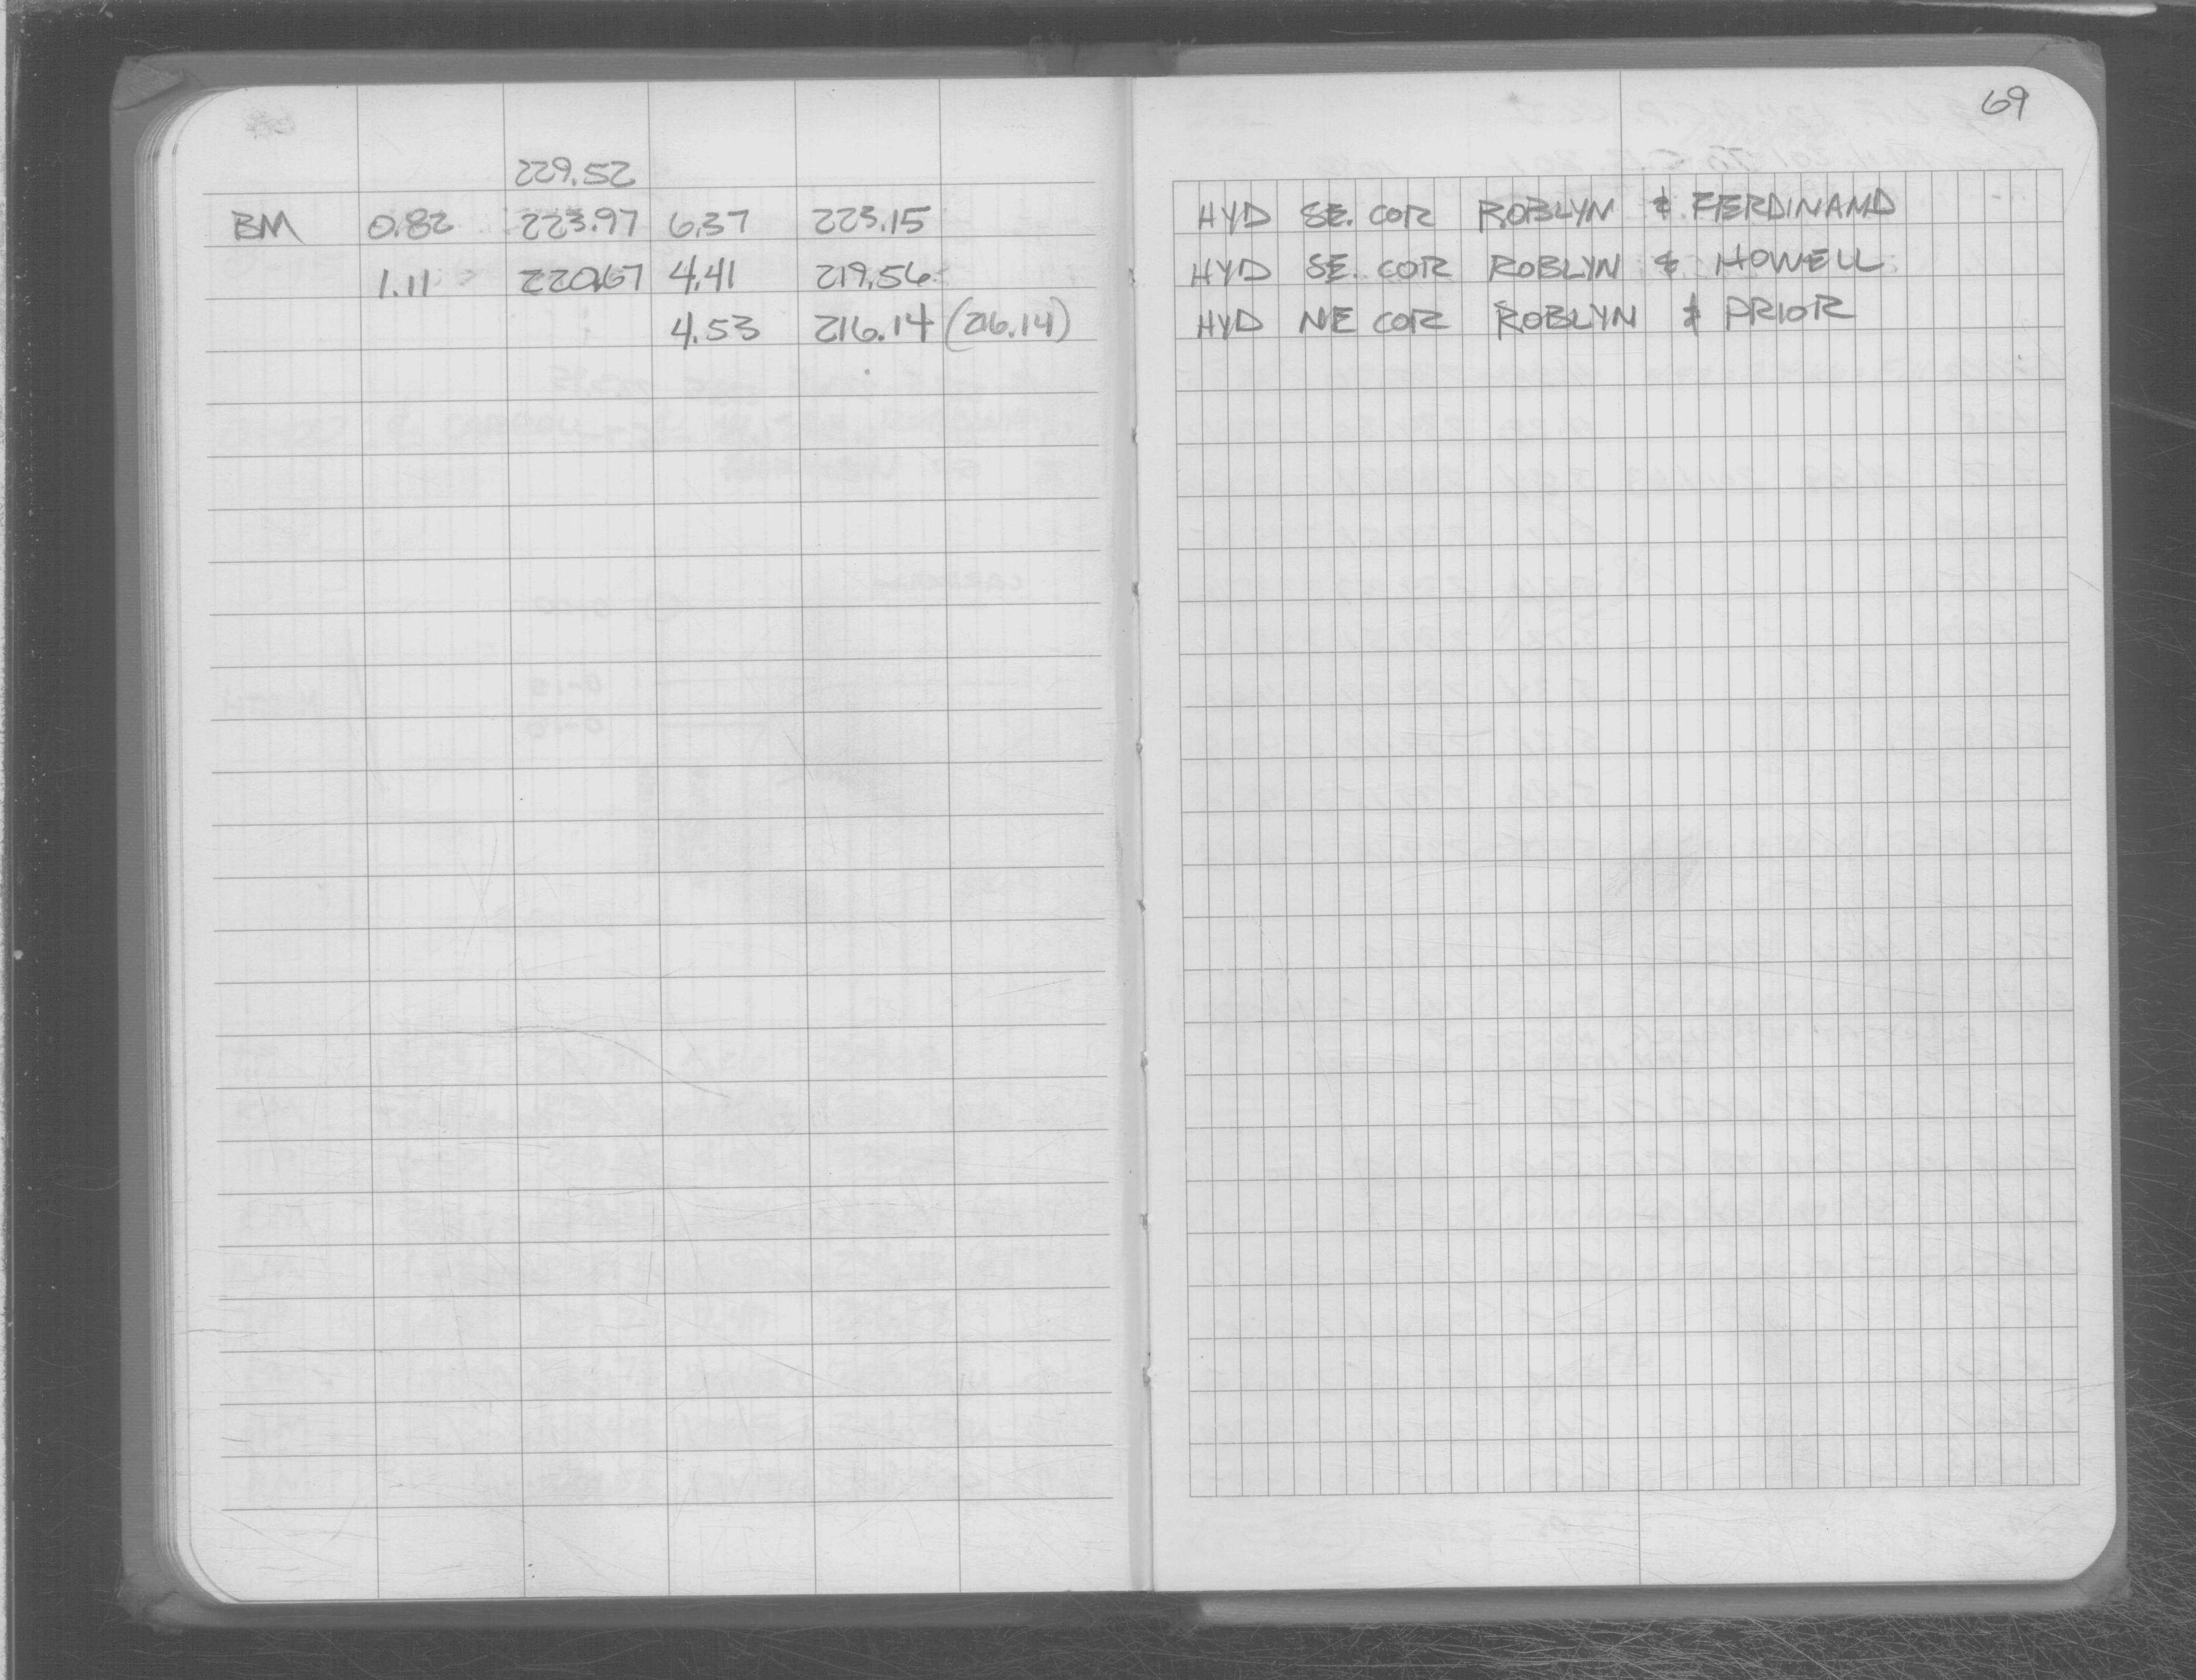 69
229.52
BM 0.82 223.97 6.37 223.15 HYD SE. COR ROBLYN & FERDINAND
1.11 220.67 4.41 219.56 HYD SE. COR ROBLYN & HOWELL
4.53 216.14 (216.14) HYD NE COR ROBLYN & PRIOR